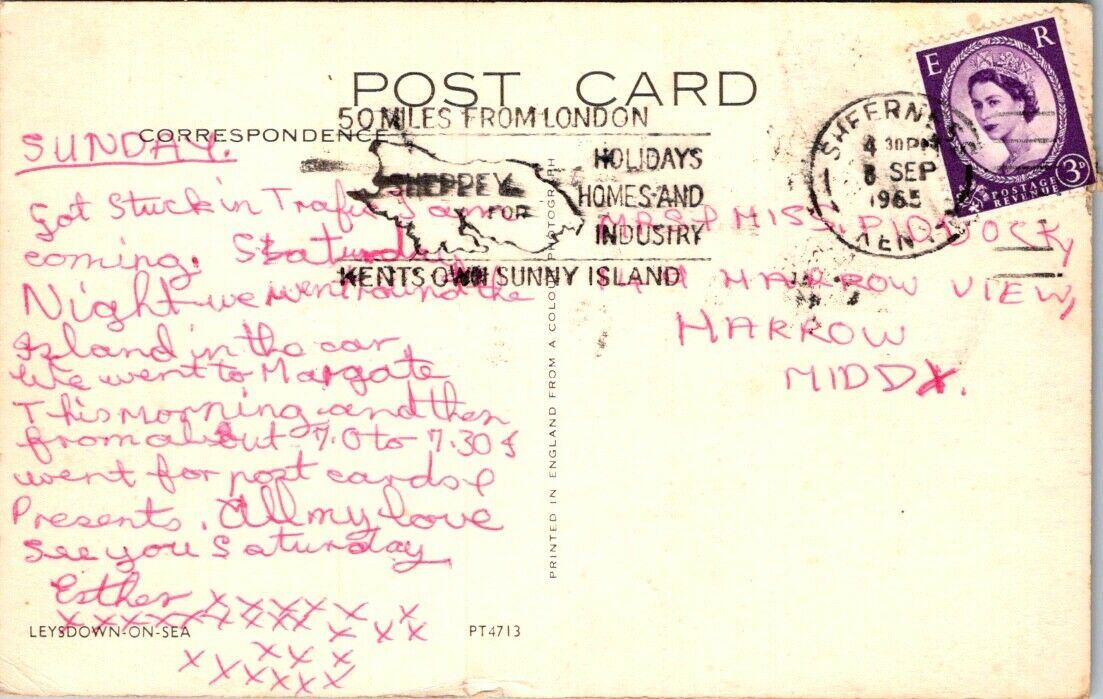 POST CARD
CORRESPONDENCE
50 MILES FROM LONDON
SHEPPEY
FOR
HOLIDAYS
HOMES AND
INDUSTRY
KENTS OWN SUNNY ISLAND
SHEERNESS
4 30PM
8 SEP
1965
KENT
E R
POSTAGE
REVENUE
3D
SUNDAY.
Got Stuck in Trafic
coming. Staturday
Night we went round the
Island in the car,
We went to Margate
This morning and then
from about 7.0 to 7.30 I
went for post cards &
Presents. All my love
See you Saturday
Esther x x x x x x x
x x x x x x x x x x x x
x x x
x x x x x x
MRS & MISS. PIDDOCK,
HARROW VIEW,
HARROW
MIDDX.
PRINTED IN ENGLAND FROM A COLOUR PHOTOGRAPH
LEYSDOWN-ON-SEA
PT4713